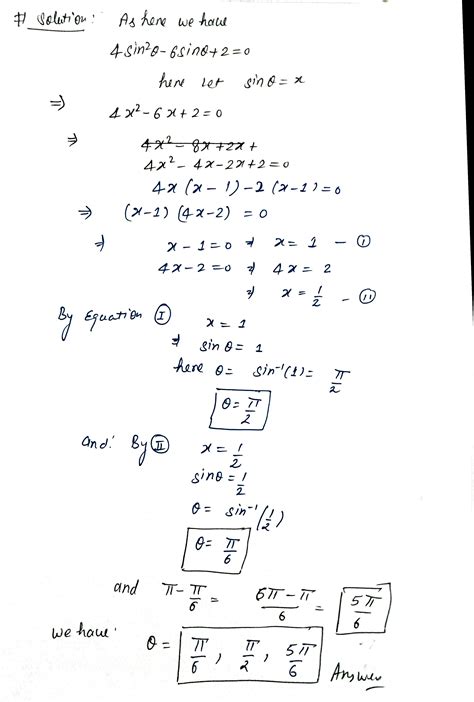 # Solution: As here we have
4 sin²θ - 6 sinθ + 2 = 0
here Let sinθ = x
⇒ 4x² - 6x + 2 = 0
⇒ 4x² - 8x + 2x +
4x² - 4x - 2x + 2 = 0
4x (x - 1) - 2 (x - 1) = 0
⇒ (x-1) (4x-2) = 0
⇒ x - 1 = 0 ⇒ x = 1 - (I)
4x - 2 = 0 ⇒ 4x = 2
⇒ x = 1/2 - (II)
By Equation (I) x = 1
⇒ sinθ = 1
here θ = sin⁻¹(1) = π/2
θ = π/2
and: By (II) x = 1/2
sinθ = 1/2
θ = sin⁻¹(1/2)
θ = π/6
and π - π/6 = 6π - π/6 = 5π/6
we have: θ = π/6, π/2, 5π/6 Answer